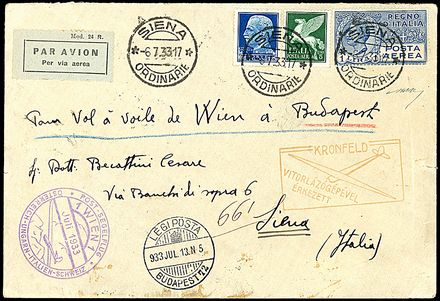 Mod. 24 R.
PAR AVION
Per via aerea
SIENA
6.7.33.17
* ORDINARIE *
SIENA
7.33.17
* ORDINARIE *
SIENA
ORDINARIE
REGNO
D'ITALIA
POSTA
AEREA
Pour Vol à voile de Wien à Budapest
p. Dott. Becattini Cesare
Via Banchi di sopra 6
66
Siena
(Italia)
KRONFELD
VITORLÁZÓGÉPÉVEL
ÉRKEZETT
POST-SEGELFLUG
1 WIEN 1
Juli 1933
ÖSTERREICH-UNGARN-ITALIEN-SCHWEIZ
LÉGI POSTA
933 JUL. 13. N 5
BUDAPEST 72